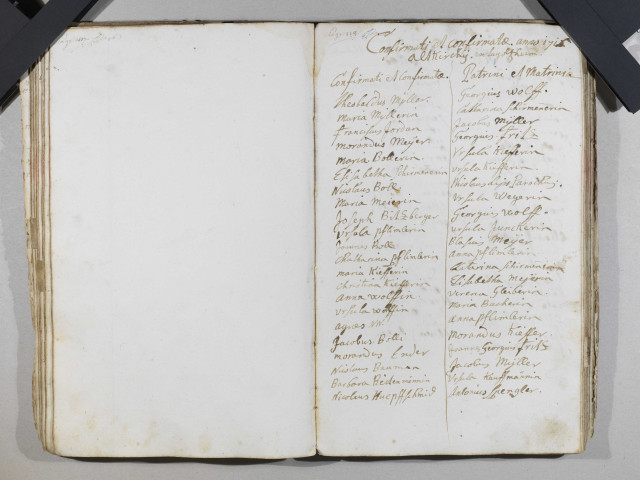 Confirmati et confirmatæ anno
Altkirchij
Confirmati et Confirmatæ
Theobaldus Mÿller
Maria Mÿllerin
franciscus Jordan
morandus Meÿer
Maria Bollerin
Elisabetha Schirmenerin
Nicolaus Boll
Maria Meierin
Joseph Bitzberger
Vrsula pflimlerin
Joannes Boll
Catharina pflimlerin
maria Kiefferin
christina Kiefferin
anna wolffin
vrsula wolffin
agnes
Jacobus Boll
morandus Ender
Nicolaus Bauman
Barbara
Nicolaus
Patrini et Matrinæ
Georgius wolff.
Catharina Schirmenerin
Jacobus Mÿller
Georgius fritz
Vrsula Kiefferin
Vrsula Kiefferin
Nicolaus
Vrsula Weyerin
Georgius wolff
vrsula Junckerin
Blasius Meÿer
anna pflimlerin
Caterina Schirmenerin
Elisabetha Meÿerin
verena Gleiberin
maria Bacherin
anna pflimlerin
Morandus Kieffer
Joannes Georgius fritz
Jacobus Mÿller
Vrsula Kauffmännin
Antonius Spengler.